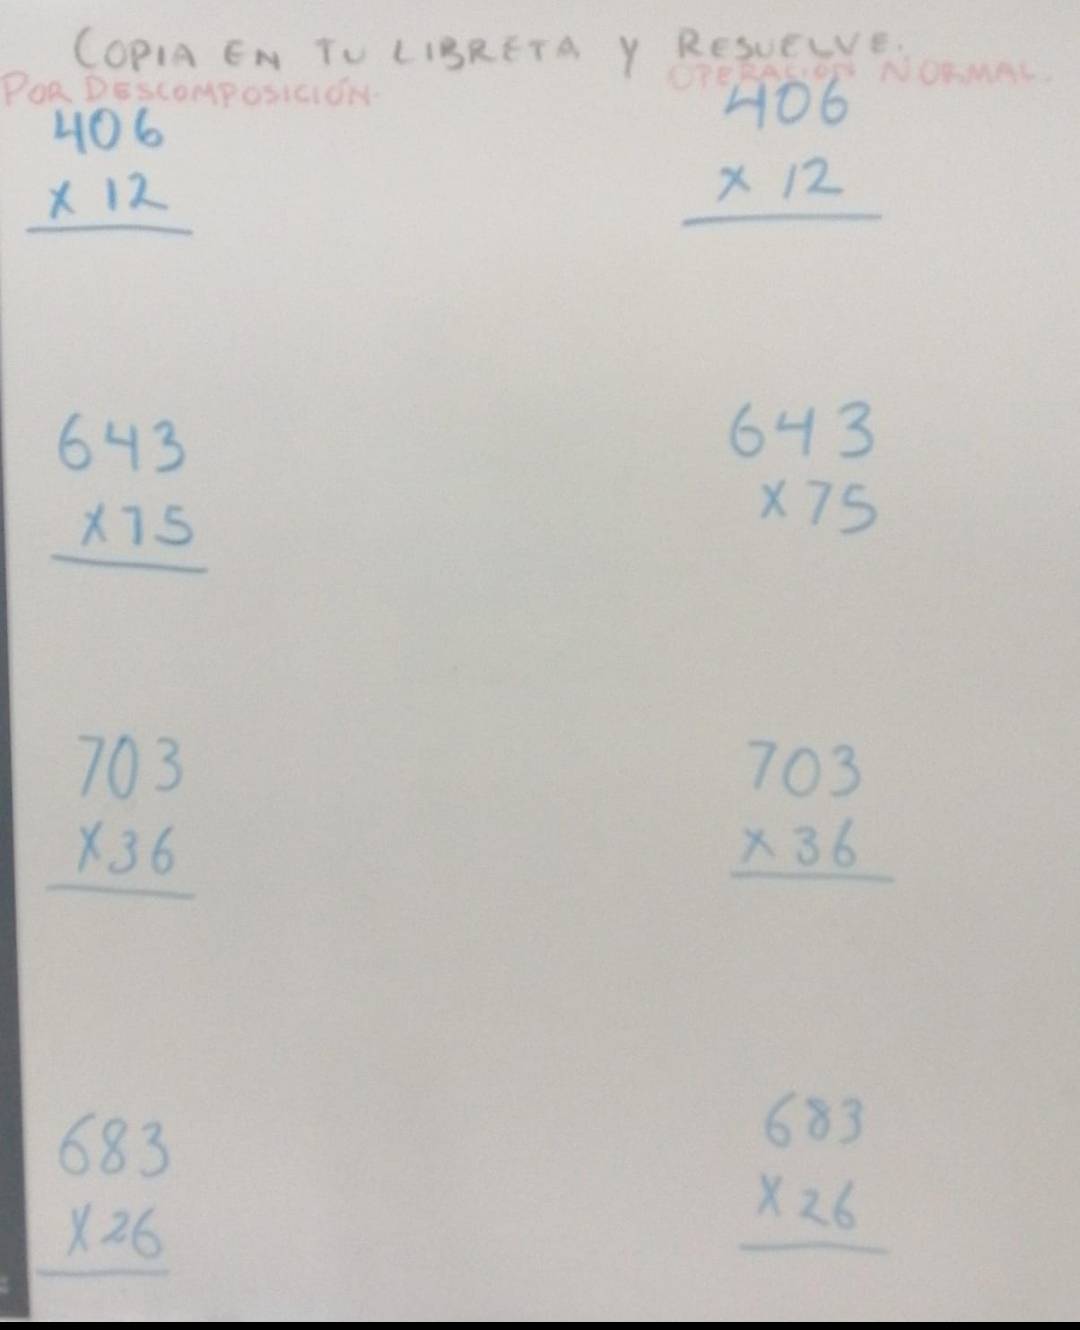 COPIA EN TU LIBRETA Y RESUELVE.
POR DESCOMPOSICIÓN. OPERACIÓN NORMAL.
406 406
x 12 x 12
643 643
x 75 x 75
703 703
x 36 x 36
683 683
x 26 x 26